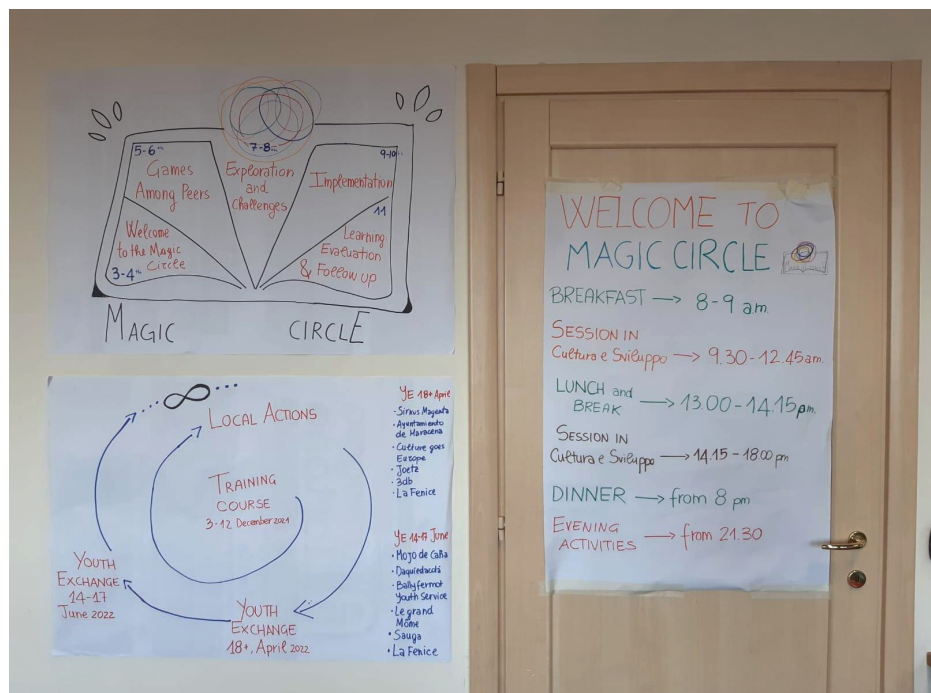 5-6th
Games
Among Peers
7-8th
Exploration
and
Challenges
9-10th
Implementation
Welcome
to the Magic
Circle
3-4th
11
Learning
Evaluation
& Follow up
MAGIC CIRCLE
LOCAL ACTIONS
TRAINING
COURSE
3-12 December 2021
YOUTH
EXCHANGE
14-17
June 2022
YOUTH
EXCHANGE
18+, April 2022
YE 18+ April
- Sirius Magenta
· Ayuntamiento
de Maracena
· Culture goes
Europe
· Joetz
· 3db
· La Fenice
YE 14-17 June
· Mojo de Caña
· Ballyfermot
Youth Service
· Le grand
Môme
· Sauga
· La Fenice
WELCOME TO
MAGIC CIRCLE
BREAKFAST → 8-9 a.m.
SESSION IN
Cultura e Sviluppo → 9.30-12.45 am.
LUNCH and
BREAK → 13.00-14.15 pm.
SESSION IN
Cultura e Sviluppo → 14.15-18.00 pm
DINNER → from 8 pm
EVENING
ACTIVITIES → from 21.30